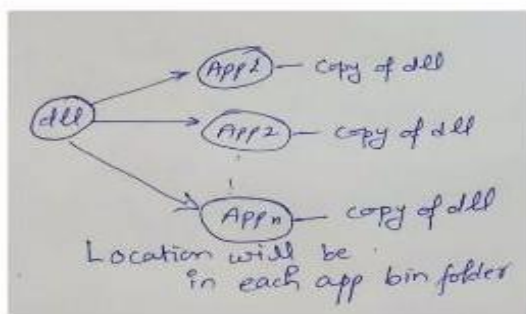 App1 — copy of dll
dll
App2 — copy of dll
Appn — copy of dll
Location will be
in each app bin folder